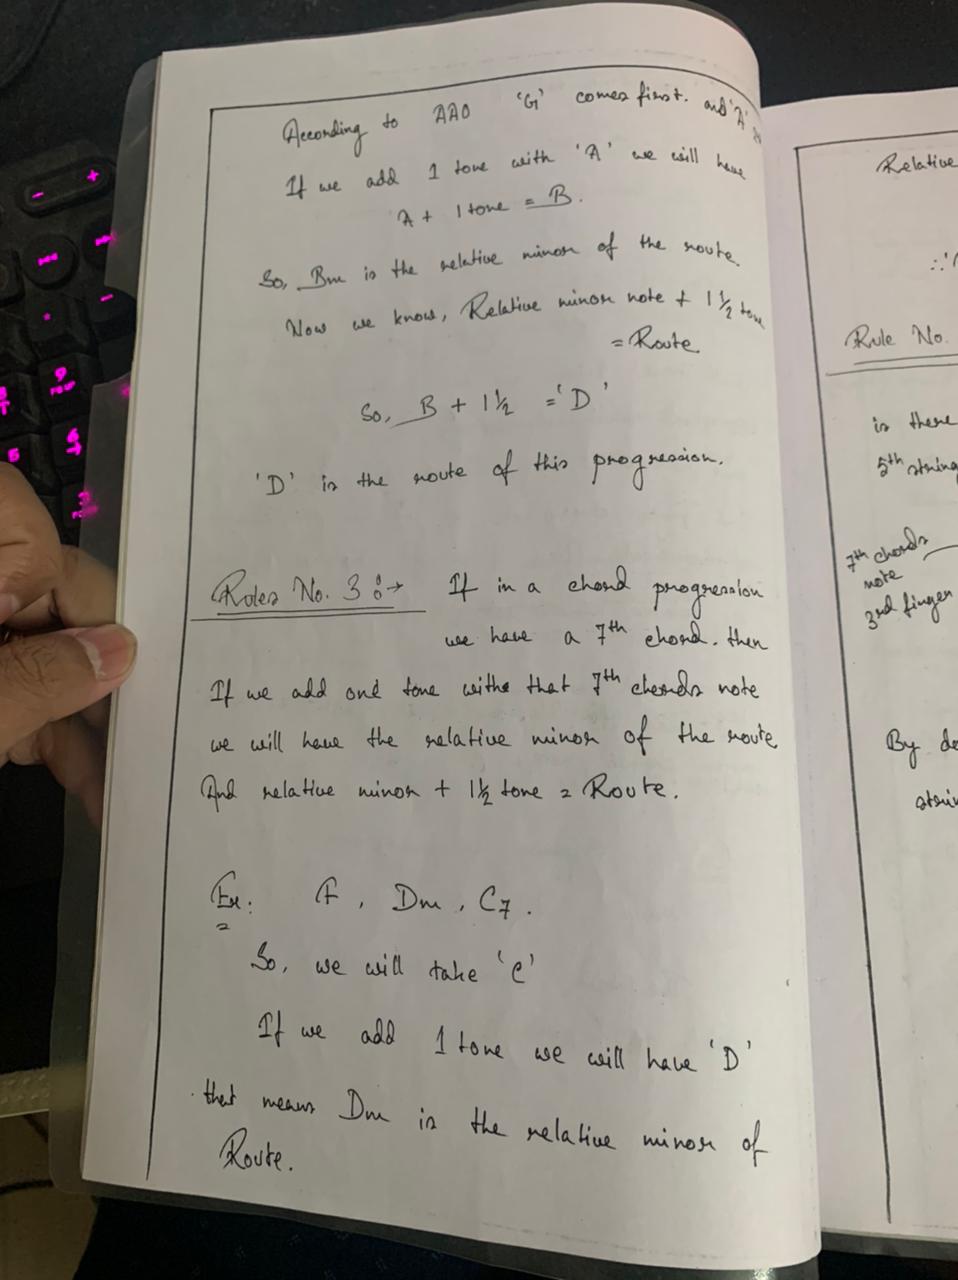 According to AAO 'G' comes first. and 'A'
If we add 1 tone with 'A' we will have
A + 1 tone = B.
So, Bm is the relative minor of the route.
Now we know, Relative minor note + 1 1/2 tone
= Route
So, B + 1 1/2 = 'D'
'D' is the route of this progression.
Rules No. 3 :→ If in a chord progression
we have a 7th chord. then
If we add one tone withe that 7th chords note
we will have the relative minor of the route
And relative minor + 1 1/2 tone = Route.
Ex: F, Dm, C7.
So, we will take 'C'
If we add 1 tone we will have 'D'
that means Dm is the relative minor of
Route.
Relative
∴
Rule No.
is there
5th string
7th chords
note
3rd finger
By